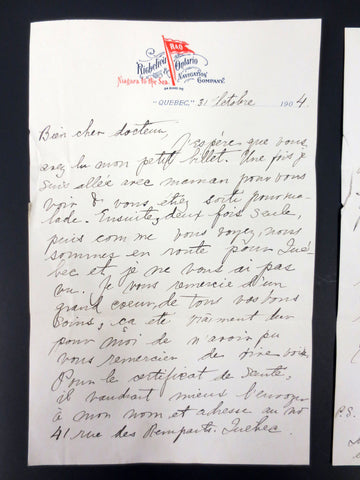 R&O
Richelieu & Ontario
Niagara to the Sea. Navigation Company.
"QUEBEC," 31 Octobre 1904.
Bien cher docteur,
J'espère que vous
avez lu mon petit billet. Une fois je
suis allée avec maman pour vous
voir & vous étiez sorti pour ma-
lade. Ensuite, deux fois seule,
puis comme vous voyez, nous
sommes en route pour Qué-
bec et je ne vous ai pas
vu. Je vous remercie d'un
grand coeur, de tous vos bons
soins, ça été vraiment dur
pour moi de n'avoir pu
vous remercier de vive voix.
Pour le certificat de santé,
il vaudrait mieux l'envoyer
à mon nom et adresse au no
41 rue des Remparts. Québec.
P.S.